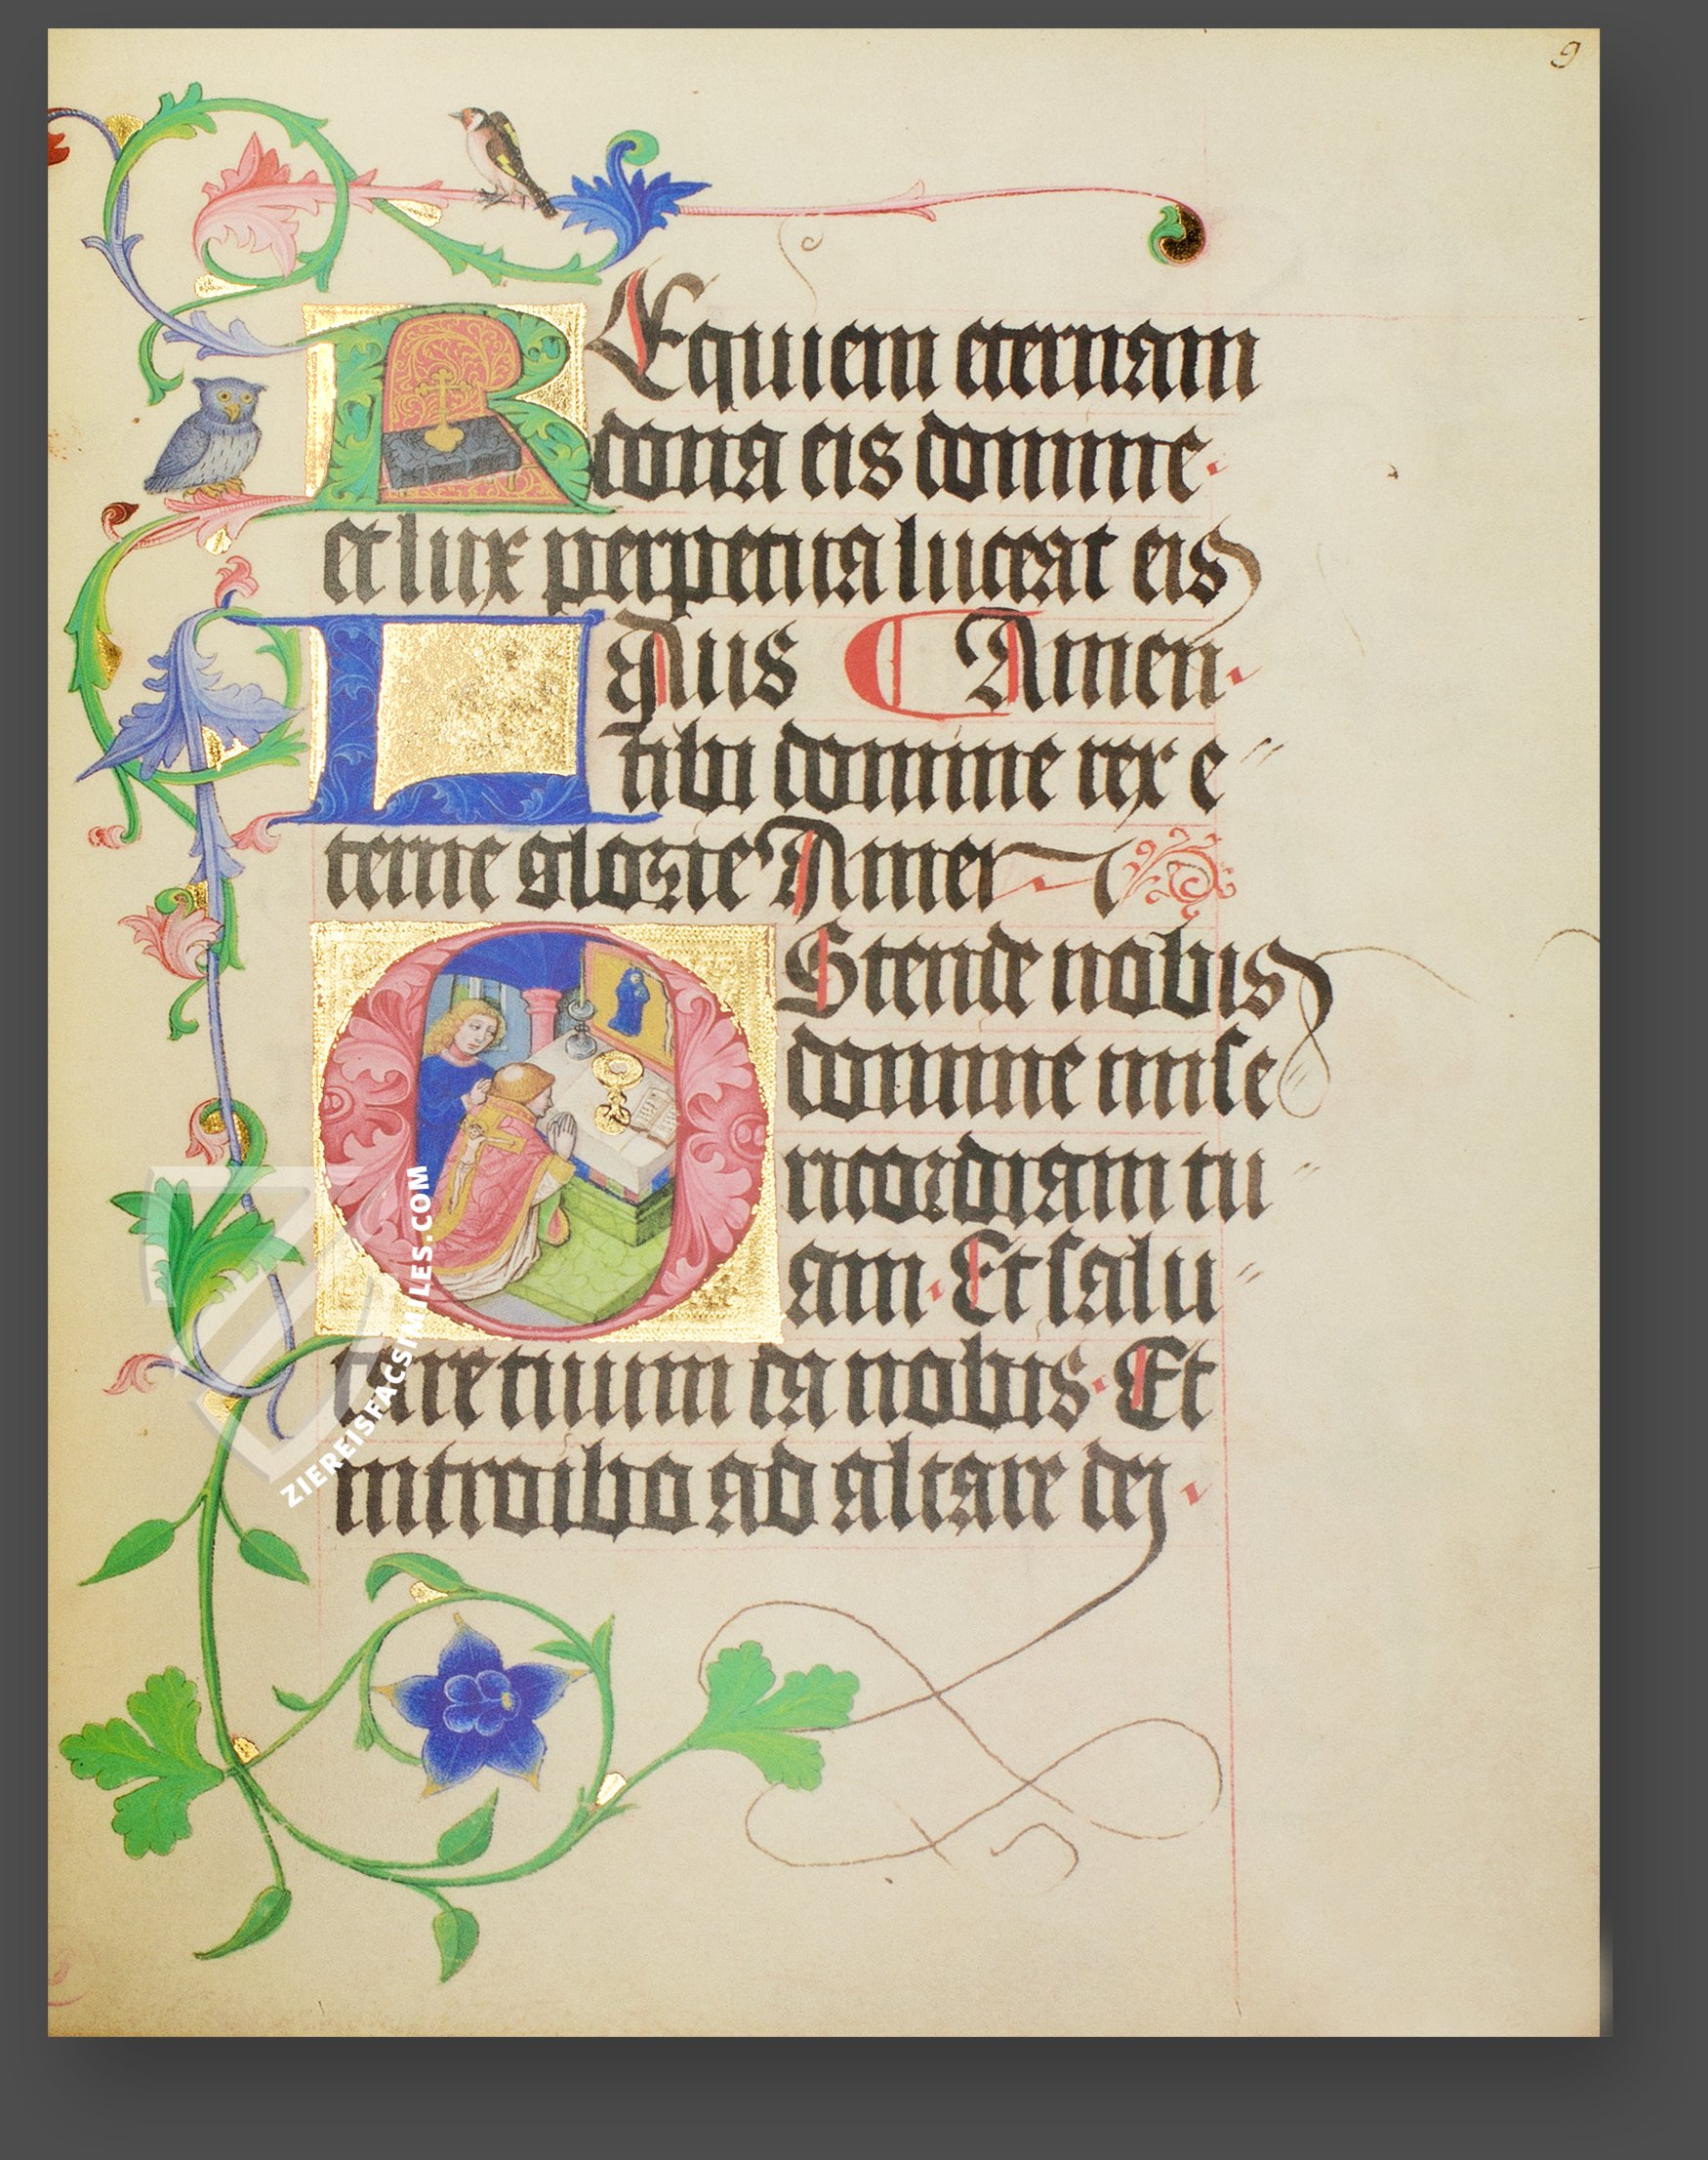 9
REquiem eternam
dona eis domine·
et lux perpetua luceat eis
LAus Amen·
tibi domine rex e
terne glorie Amen
OStende nobis
domine mise
ricordiam tu
am· Et salu
tare tuum da nobis· Et
introibo ad altare dej·
ZIEREISFACSIMILES.COM